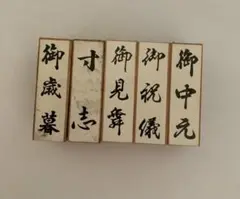 御中元
御祝儀
御見舞
寸志
御歳暮